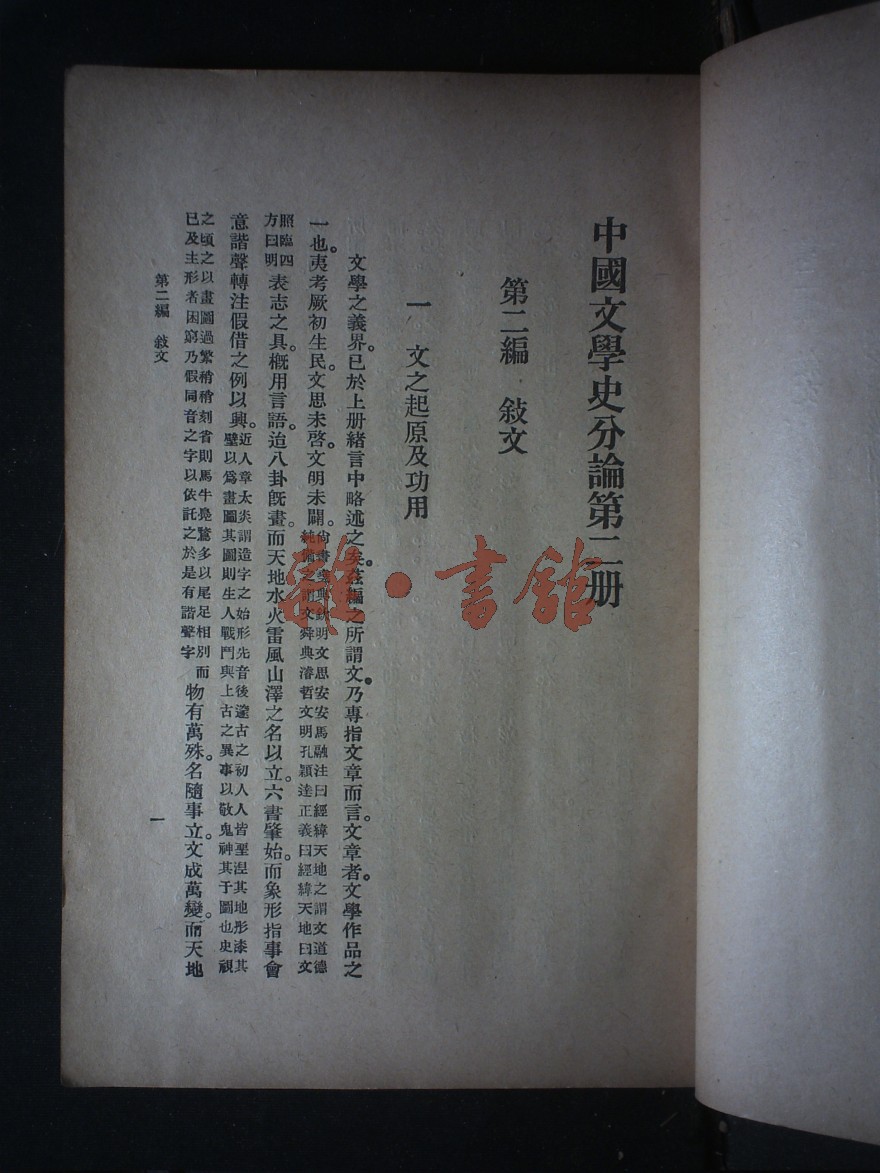 中國文學史分論第二册
第二編 敍文
一 文之起原及功用
文學之義界。已於上册緒言中略述之矣。茲編之所謂文。乃專指文章而言。文章者。文學作品之
一也。夷考厥初生民。文思未啓。文明未闢。尙書堯典欽明文思安安馬融注曰經緯天地之謂文道德
純備之謂文舜典濬哲文明孔穎達正義曰經緯天地曰文
照臨四
方曰明表志之具。槪用言語。迨八卦旣畫。而天地水火雷風山澤之名以立。六書肇始。而象形指事會
意諧聲轉注假借之例以興。近人章太炎謂造字之始形先音後邃古之初人人皆堊涅其地彤漆其
壁以爲畫圖其圖則生人戰鬥與上古之異事以敬鬼神其于圖也史視
之頃之以畫圖過繁稍稍刻省則馬牛鳧鷖多以尾足相別而
已及主形者困窮乃假同音之字以依託之於是有諧聲字物有萬殊。名隨事立。文成萬變。而天地
第二編 敍文
一
雜·書館